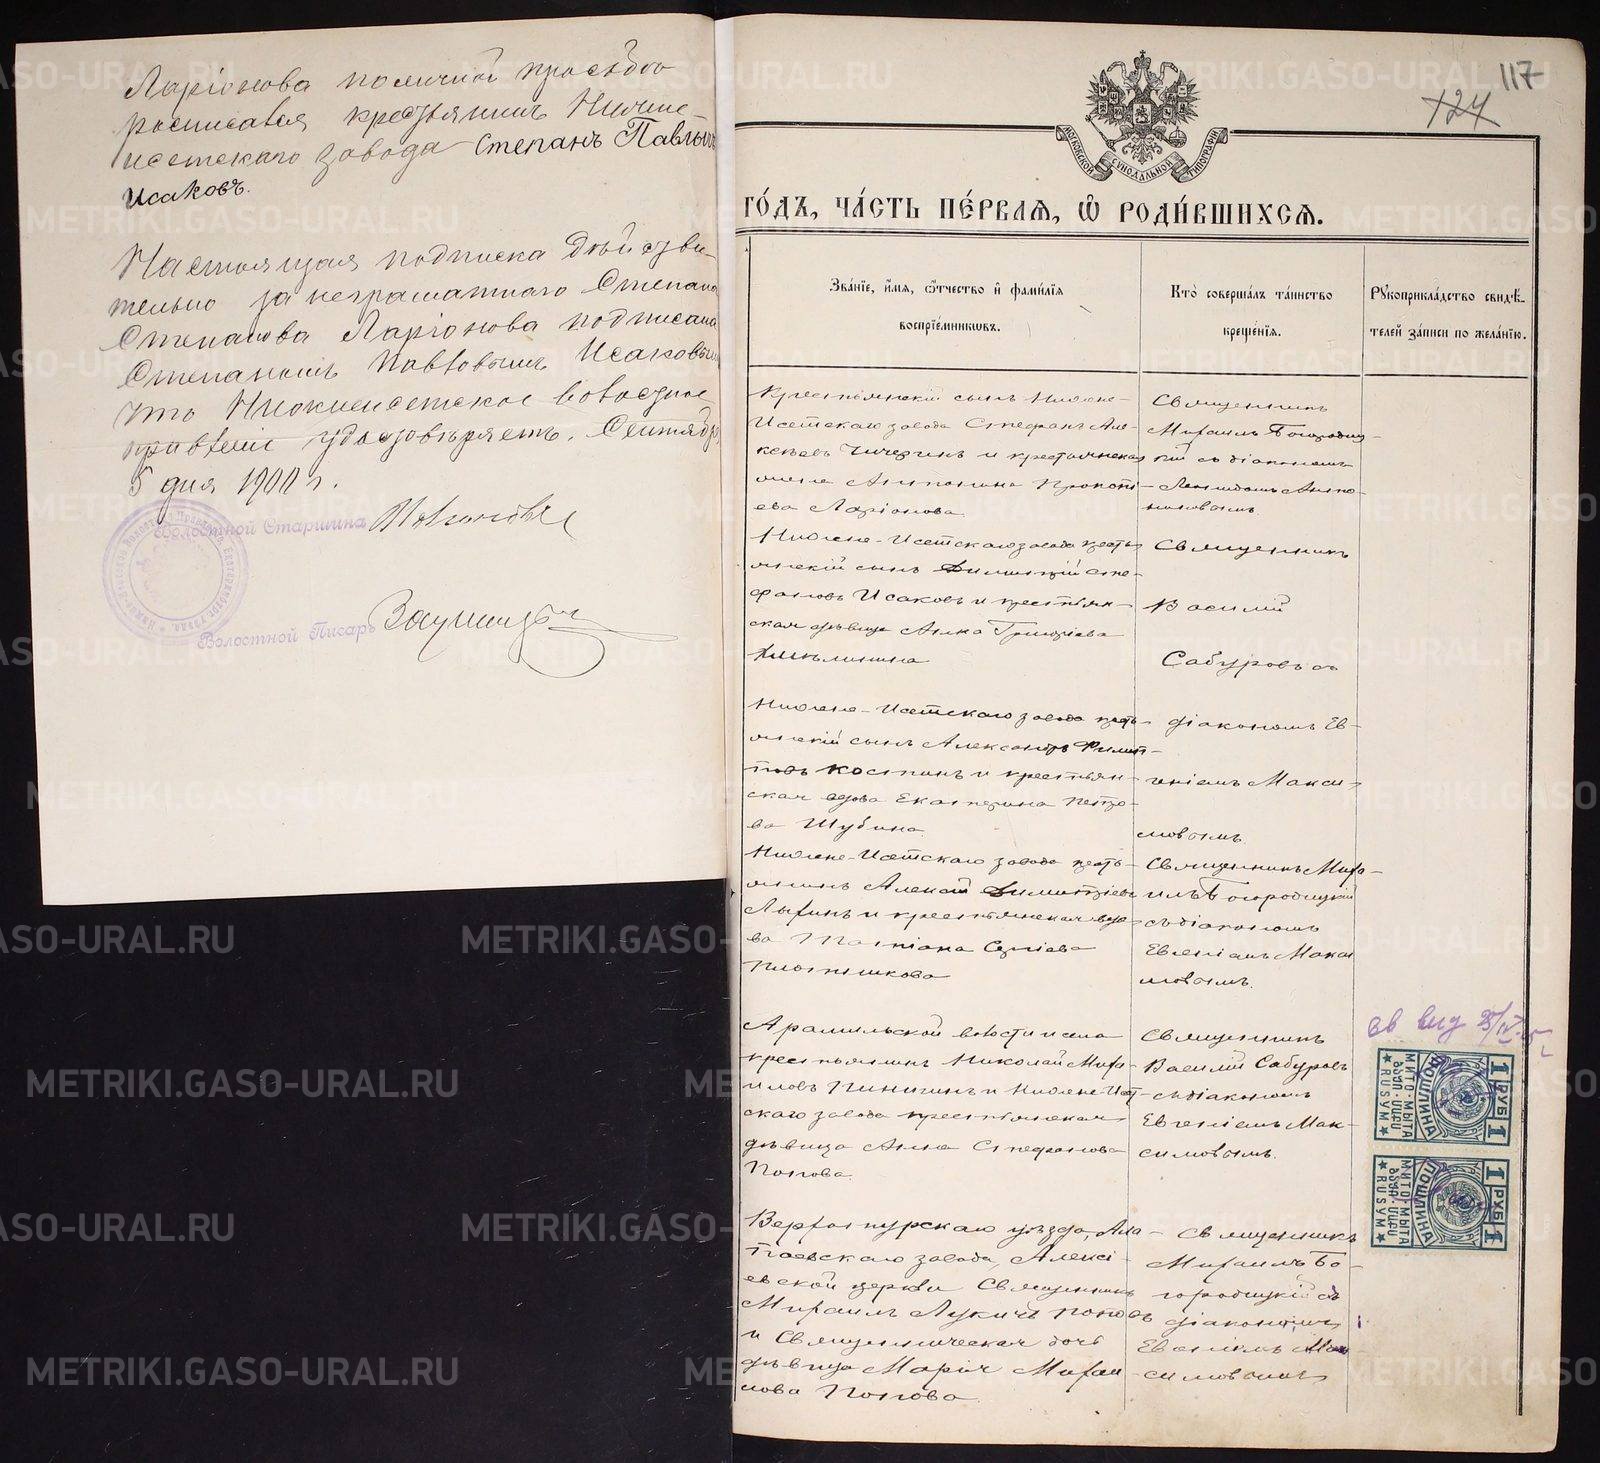 Ларіонова по личной просьбѣ
росписался крестьянинъ Нижне-
исетскаго завода Степанъ Павлычъ
Исаковъ.
Настоящая подписка дѣйстви-
тельно за неграматнаго Степана
Степанова Ларіонова подписана
Степаномъ Павловымъ Исаковымъ
что Нижнеисетское волостное
правленіе удостовѣряетъ. Сентября
5 дня 1900 г.
Волостной Старшина
Волостной Писарь
117
124
МОСКОВСКОЙ СѴНОДАЛЬНОЙ ТИПОГРАФІИ
ГО́ДЪ, ЧА́СТЬ ПЕ́РВАЯ, Ѡ҆ РОДИ́ВШИХСЯ.
Зва́нїе, и҆́мя, ѻ҆́тчество и҆ фами́лїя
воспрїе́мниковъ.
Кто̀ соверша́лъ та́инство
креще́нїя.
Рꙋкоприкла́дство свидѣ́-
телей за́писи по жела́нїю.
Крестьянскій сынъ Нижне-
Исетскаго завода Стефанъ Але-
ксѣевъ Чичеринъ и крестьянская
жена Антонина Прокопі-
ева Ларіонова
Священникъ
Михаилъ Богородиц-
кій съ діакономъ
Леонидомъ Анто-
ниновымъ
Нижне-Исетскаго завода кресть-
янскій сынъ Димитрій Сте-
фановъ Исаковъ и крестьян-
ская дѣвица Анна Григоріева
Священникъ
Василій
Сабуровъ съ
Нижне-Исетскаго завода кресть-
янскій сынъ Александръ Филип-
повъ Костинъ и крестьян-
ская вдова Екатерина Петро-
ва Шубина
діакономъ Ев-
геніемъ Макси-
мовымъ.
Нижне-Исетскаго завода кресть-
янинъ Алексій Димитріевъ
Лыхинъ и крестьянская вдо-
ва Татіана Сергіева
Плотникова
Священникъ Миха-
илъ Богородицкій
съ діакономъ
Евгеніемъ Макси
мовымъ.
Арамильской волости и села
крестьянинъ Николай Миха-
иловъ Пинигинъ и Нижне-Исет-
скаго завода крестьянская
дѣвица Анна Стефанова
Попова.
Священникъ
Василій Сабуровъ
съ діакономъ
Евгеніемъ Мак-
симовымъ.
Верхотурскаго уѣзда, Ала-
паевскаго завода, Алексі-
евской церкви Священникъ
Михаилъ Лукичъ Поповъ
и Священническая дочь
дѣвица Марія Михаи
лова Попова.
Священникъ
Михаилъ Бо-
городицкій съ
діакономъ
Евгеніемъ Мак-
симовымъ
1 РУБ 1
ПОШЛИНА
МИТО·МЫТА
RUSYM
1 РУБ 1
ПОШЛИНА
МИТО·МЫТА
RUSYM
METRIKI.GASO-URAL.RU